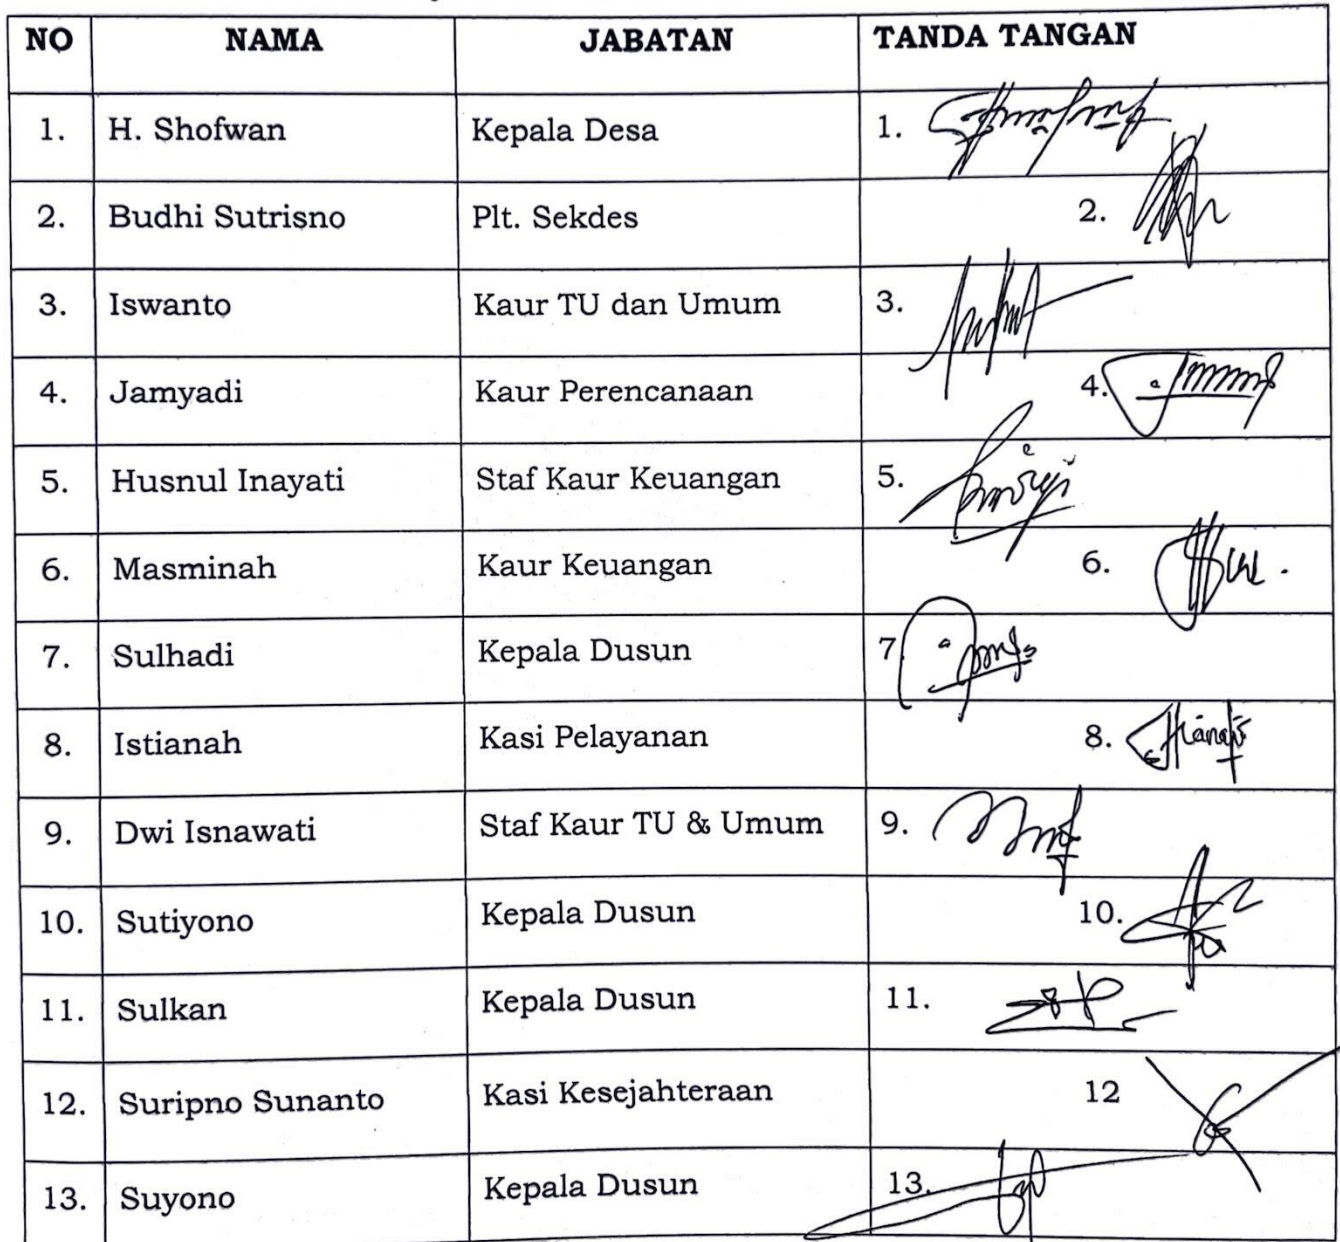 NO NAMA JABATAN TANDA TANGAN
1. H. Shofwan Kepala Desa 1.
2. Budhi Sutrisno Plt. Sekdes 2.
3. Iswanto Kaur TU dan Umum 3.
4. Jamyadi Kaur Perencanaan 4.
5. Husnul Inayati Staf Kaur Keuangan 5.
6. Masminah Kaur Keuangan 6.
7. Sulhadi Kepala Dusun 7.
8. Istianah Kasi Pelayanan 8.
9. Dwi Isnawati Staf Kaur TU & Umum 9.
10. Sutiyono Kepala Dusun 10.
11. Sulkan Kepala Dusun 11.
12. Suripno Sunanto Kasi Kesejahteraan 12
13. Suyono Kepala Dusun 13.